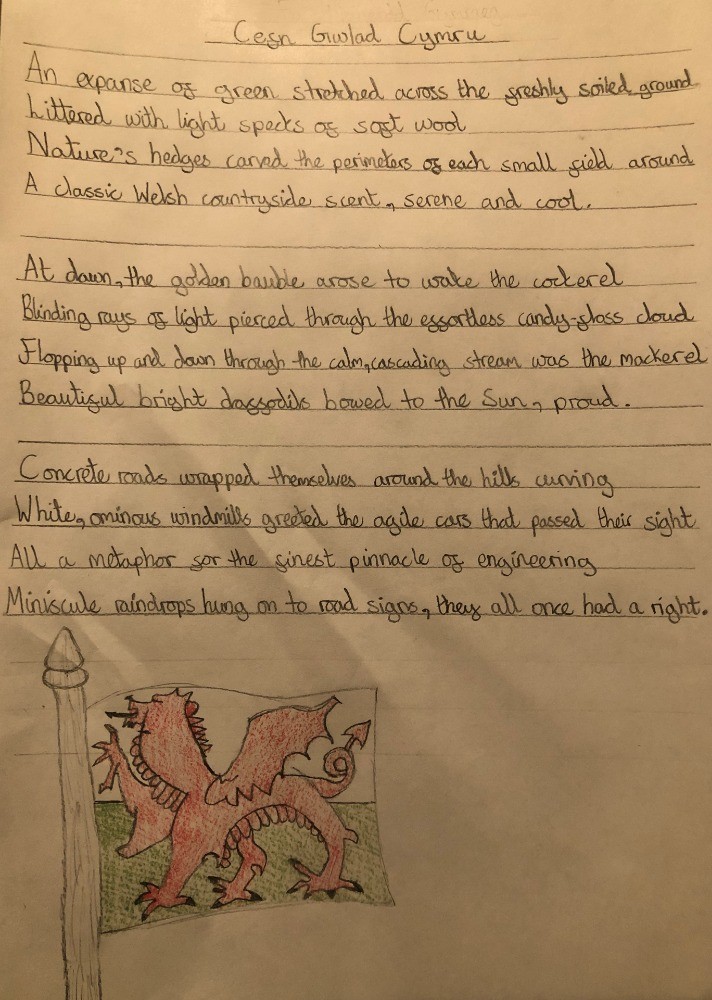 Cefn Gwlad Cymru
An expanse of green stretched across the freshly soiled ground
Littered with light specks of soft wool
Nature's hedges carved the perimeters of each small field around
A classic Welsh countryside scent, serene and cool.
At dawn, the golden bauble arose to wake the cockerel
Blinding rays of light pierced through the effortless candy-floss cloud
Flopping up and down through the calm, cascading stream was the mackerel
Beautiful bright daffodils bowed to the Sun, proud.
Concrete roads wrapped themselves around the hills curving
White, ominous windmills greeted the agile cars that passed their sight
All a metaphor for the finest pinnacle of engineering
Miniscule raindrops hung on to road signs, they all once had a right.